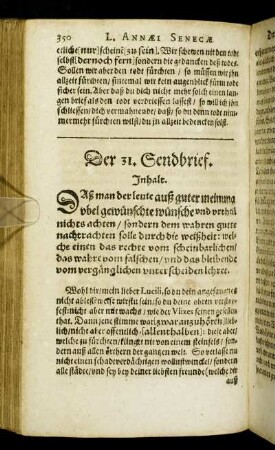 350 L. ANNÆI SENECÆ
etliche [nur] scheint [zu sein]. Wir schewen nit den tode
selbst [der noch fern] sondern die gedancken deß todes.
Sollen wir aber den tod fürchten / so müssen wir jhn
allzeit fürchten / sintemal wir kein augenblick fürm tode
sicher sein. Aber daß du dich nicht mehr solch einen lan-
gen brief als den tod verdriessen lassest / so will ich jhn
schliessen / dich verwahnende / daß / so du denn tod nim-
mermehr fürchten wilst / du jn allzeit bedencken solst.
Der 31. Sendbrief.
Inhalt.
Daß man der leute auß guter meinung
vbel gewünschte wünsche vnd vrtheil
nichts achten / sondern dem wahren gutte
nachtrachten solle durch die weißheit: wel-
che einen das rechte vom scheinbarlichen /
das wahre vom falschen / vnd das bleibende
vom vergänglichen vnterscheiden lehret.
Wohl dir / mein lieber Lucili, so du dein angefangnes
nicht
fest nicht aber mit wachs / wie der Vlixes seinen gesellen
that. Dann jene stimme war [zwar anzuhören] lieb-
lich / nicht aber öffentlich [allenthalben]: diese aber /
welche zu fürchten / klingt nit von einem steinfels / son-
dern auß allen örthern der gantzen welt. So
nicht einen schadverdächtigen wollustwinckel / sondern
alle städte / und sey bey deiner liebsten freunde [welcher die
auß